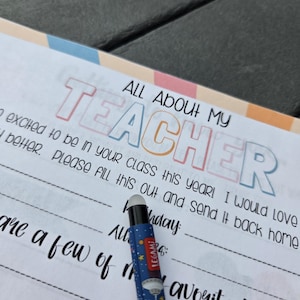 ALL ABOUT MY
TEACHER
excited to be in your class this year! I would love
better. Please fill this out and send it back home
day:
All
are a few of m
LEGAMI